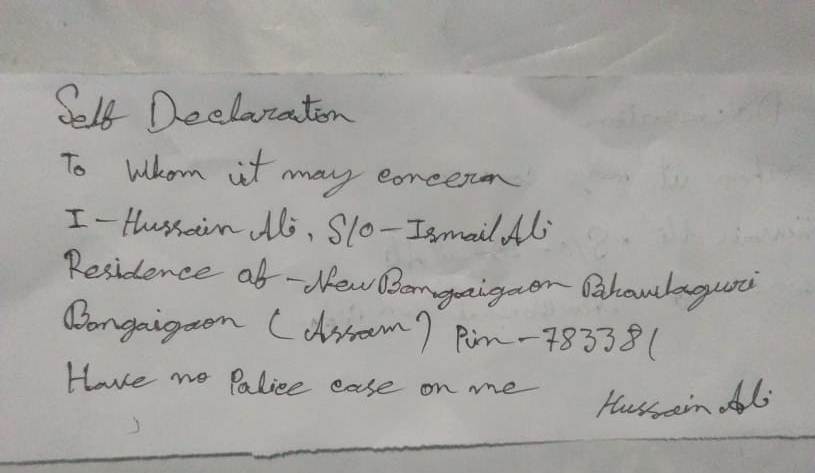 Self Declaration
To Whom it may concern
I - Hussain Ali, S/O - Ismail Ali
Residence of - New Bongaigaon Bhawlaguri
Bongaigaon (Assam) Pin - 783381
Have no Police case on me
Hussain Ali